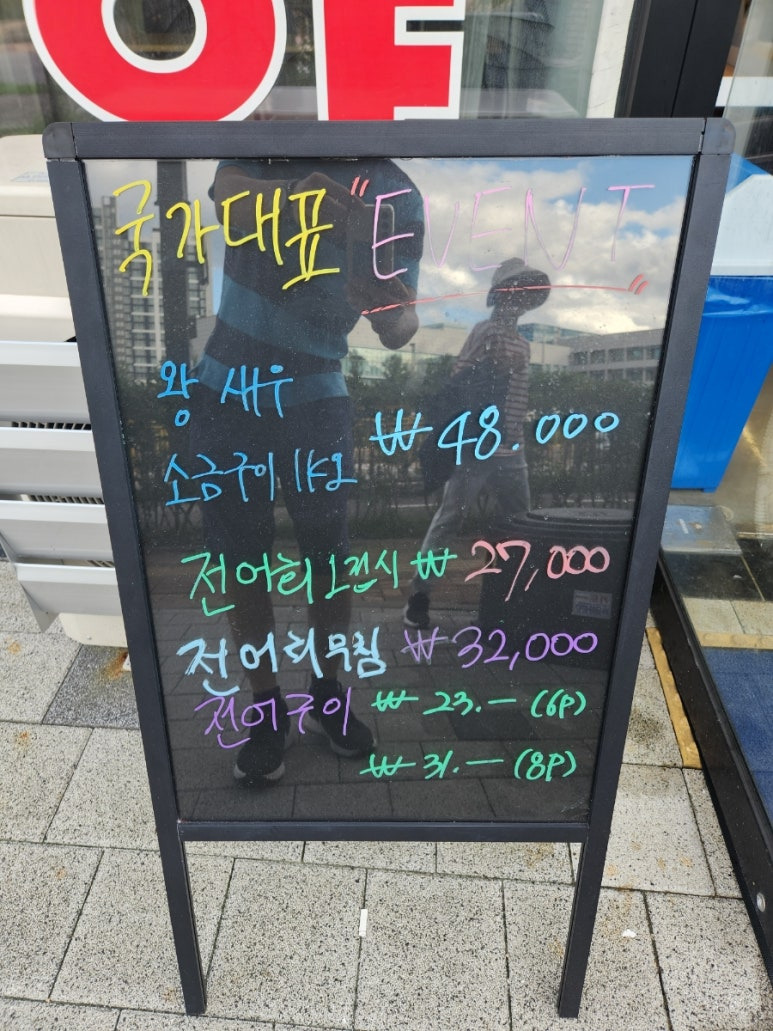 OF
국가대표 "EVENT"
왕 새우
₩48.000
소금구이 1Kg
전어회 1접시 ₩27,000
전어회무침 ₩32,000
전어구이 ₩23.— (6P)
₩31.— (8P)